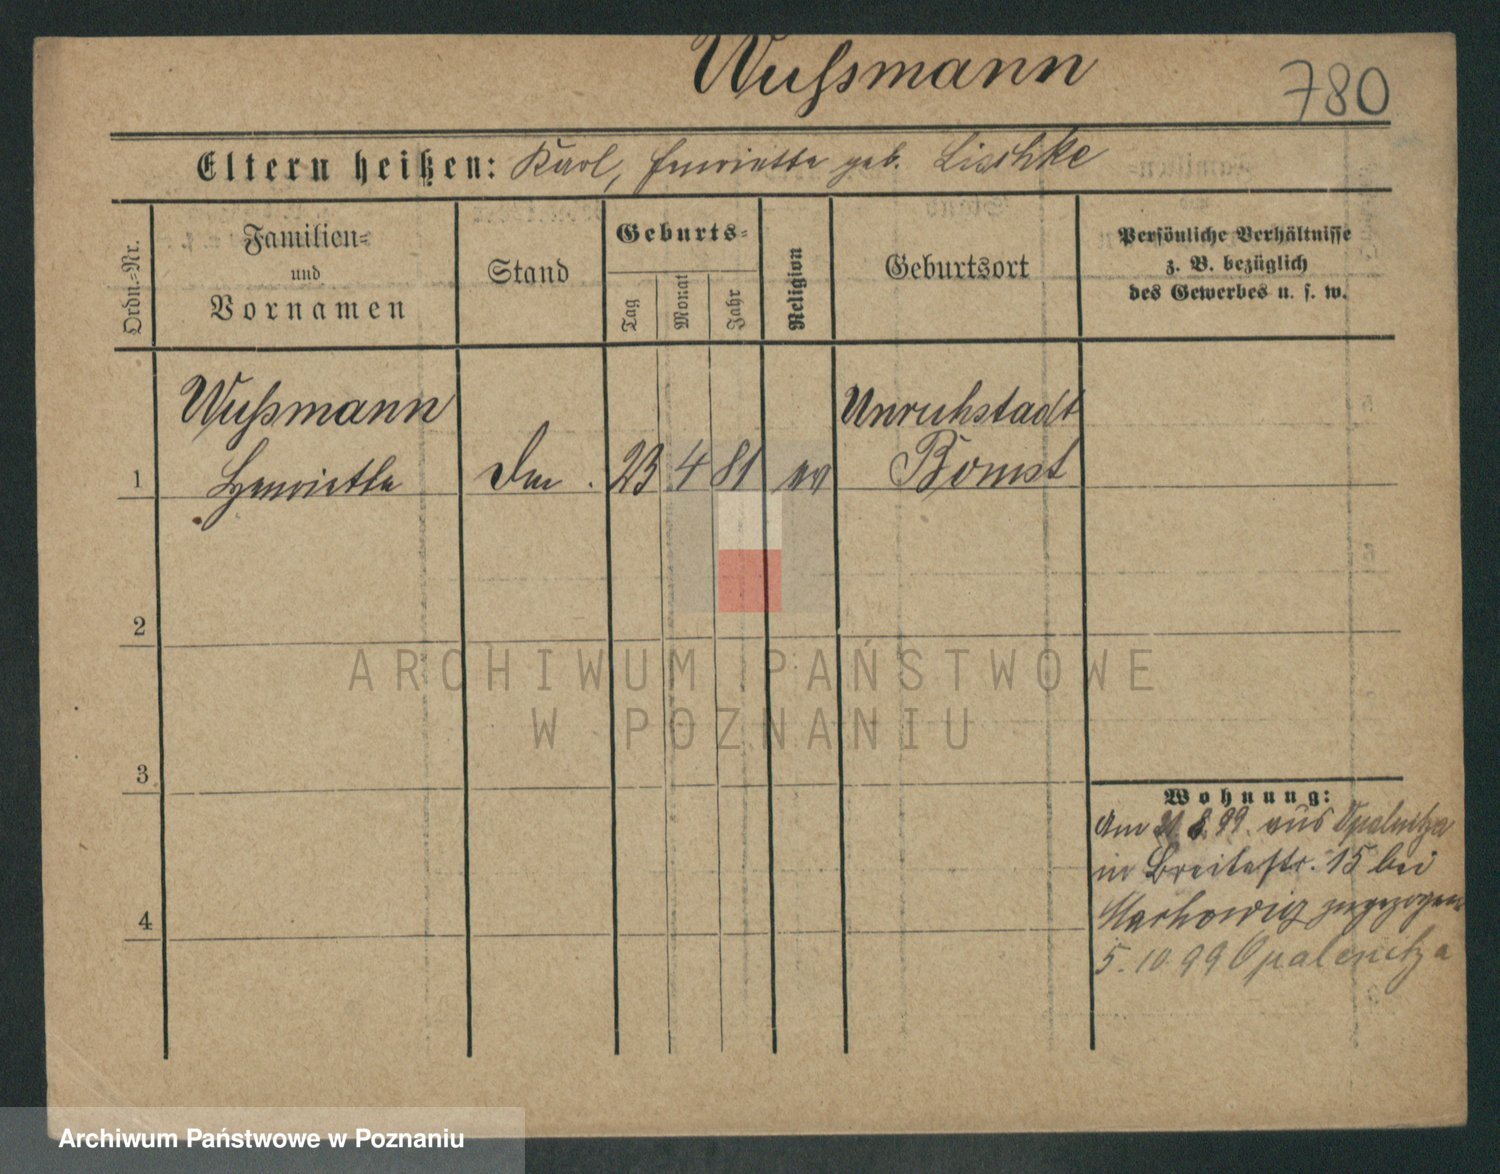 Wußmann
780
Eltern heißen: Karl, Henriette geb. Lischke
Ordn.-Nr.
Familien-
und
Vornamen
Stand
Geburts-
Tag
Monat
Jahr
Religion
Geburtsort
Persönliche Verhältnisse
z. B. bezüglich
des Gewerbes u. s. w.
Wußmann
Unruhstadt
1
Henriette
23
4
81
ev
Bomst
2
ARCHIWUM PAŃSTWOWE
W POZNANIU
3
Wohnung:
Am 21. 8. 99. aus Opalenitza
in Breitestr. 15 bei
zugezogen
4
5. 10. 99 Opalenitza
Archiwum Państwowe w Poznaniu